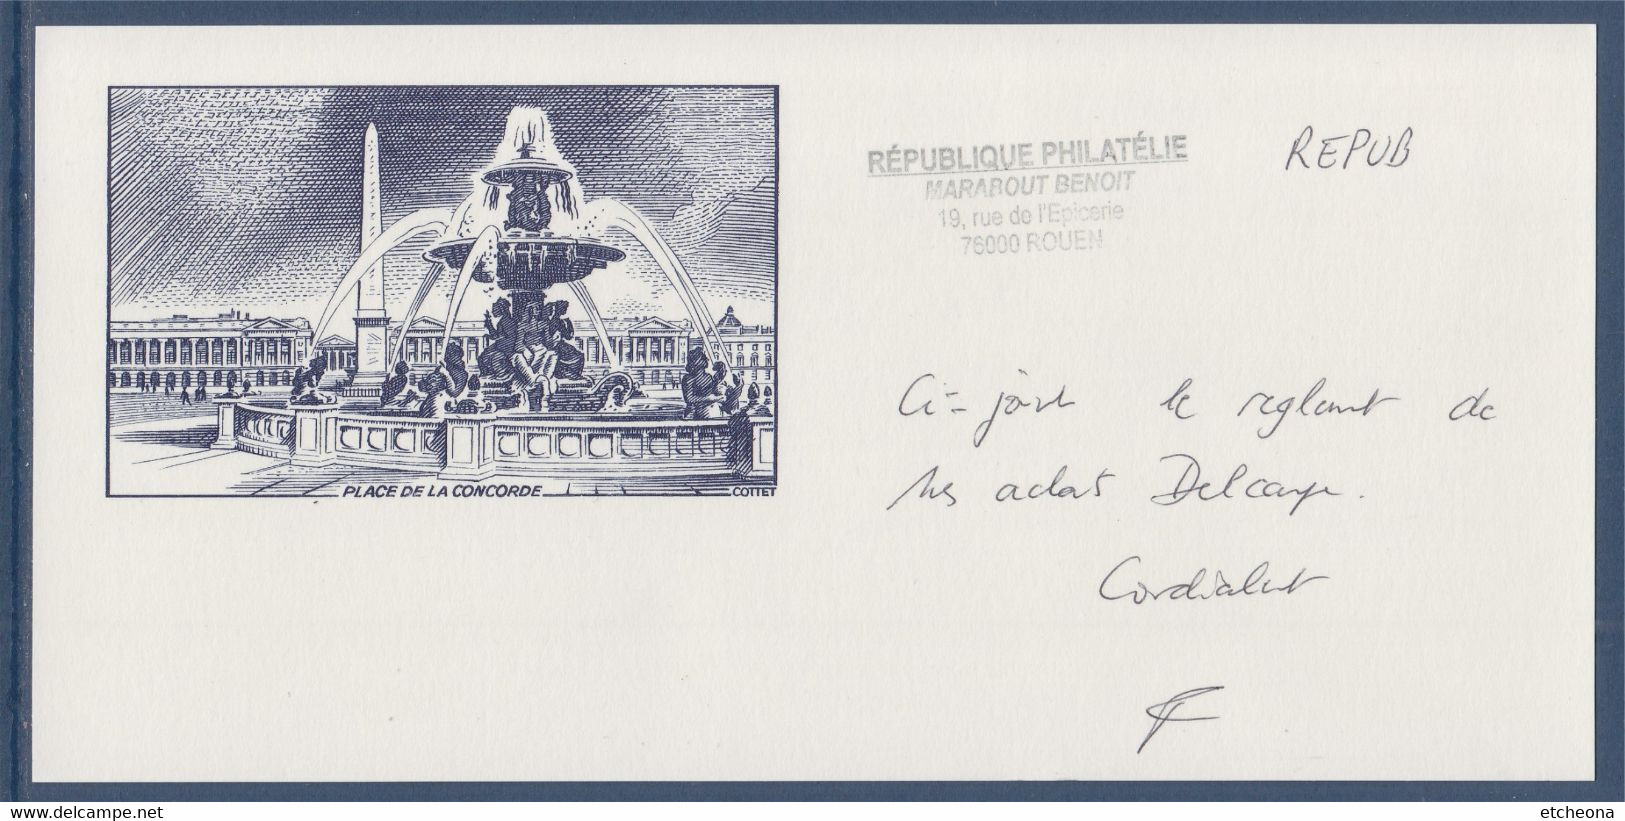 PLACE DE LA CONCORDE
COTTET
RÉPUBLIQUE PHILATÉLIE
MARABOUT BENOIT
19, rue de l'Epicerie
76000 ROUEN
REPUB
Ci-joint le reglemt de
mes achats Delcampe.
Cordialmt
www.delcampe.net
etcheona